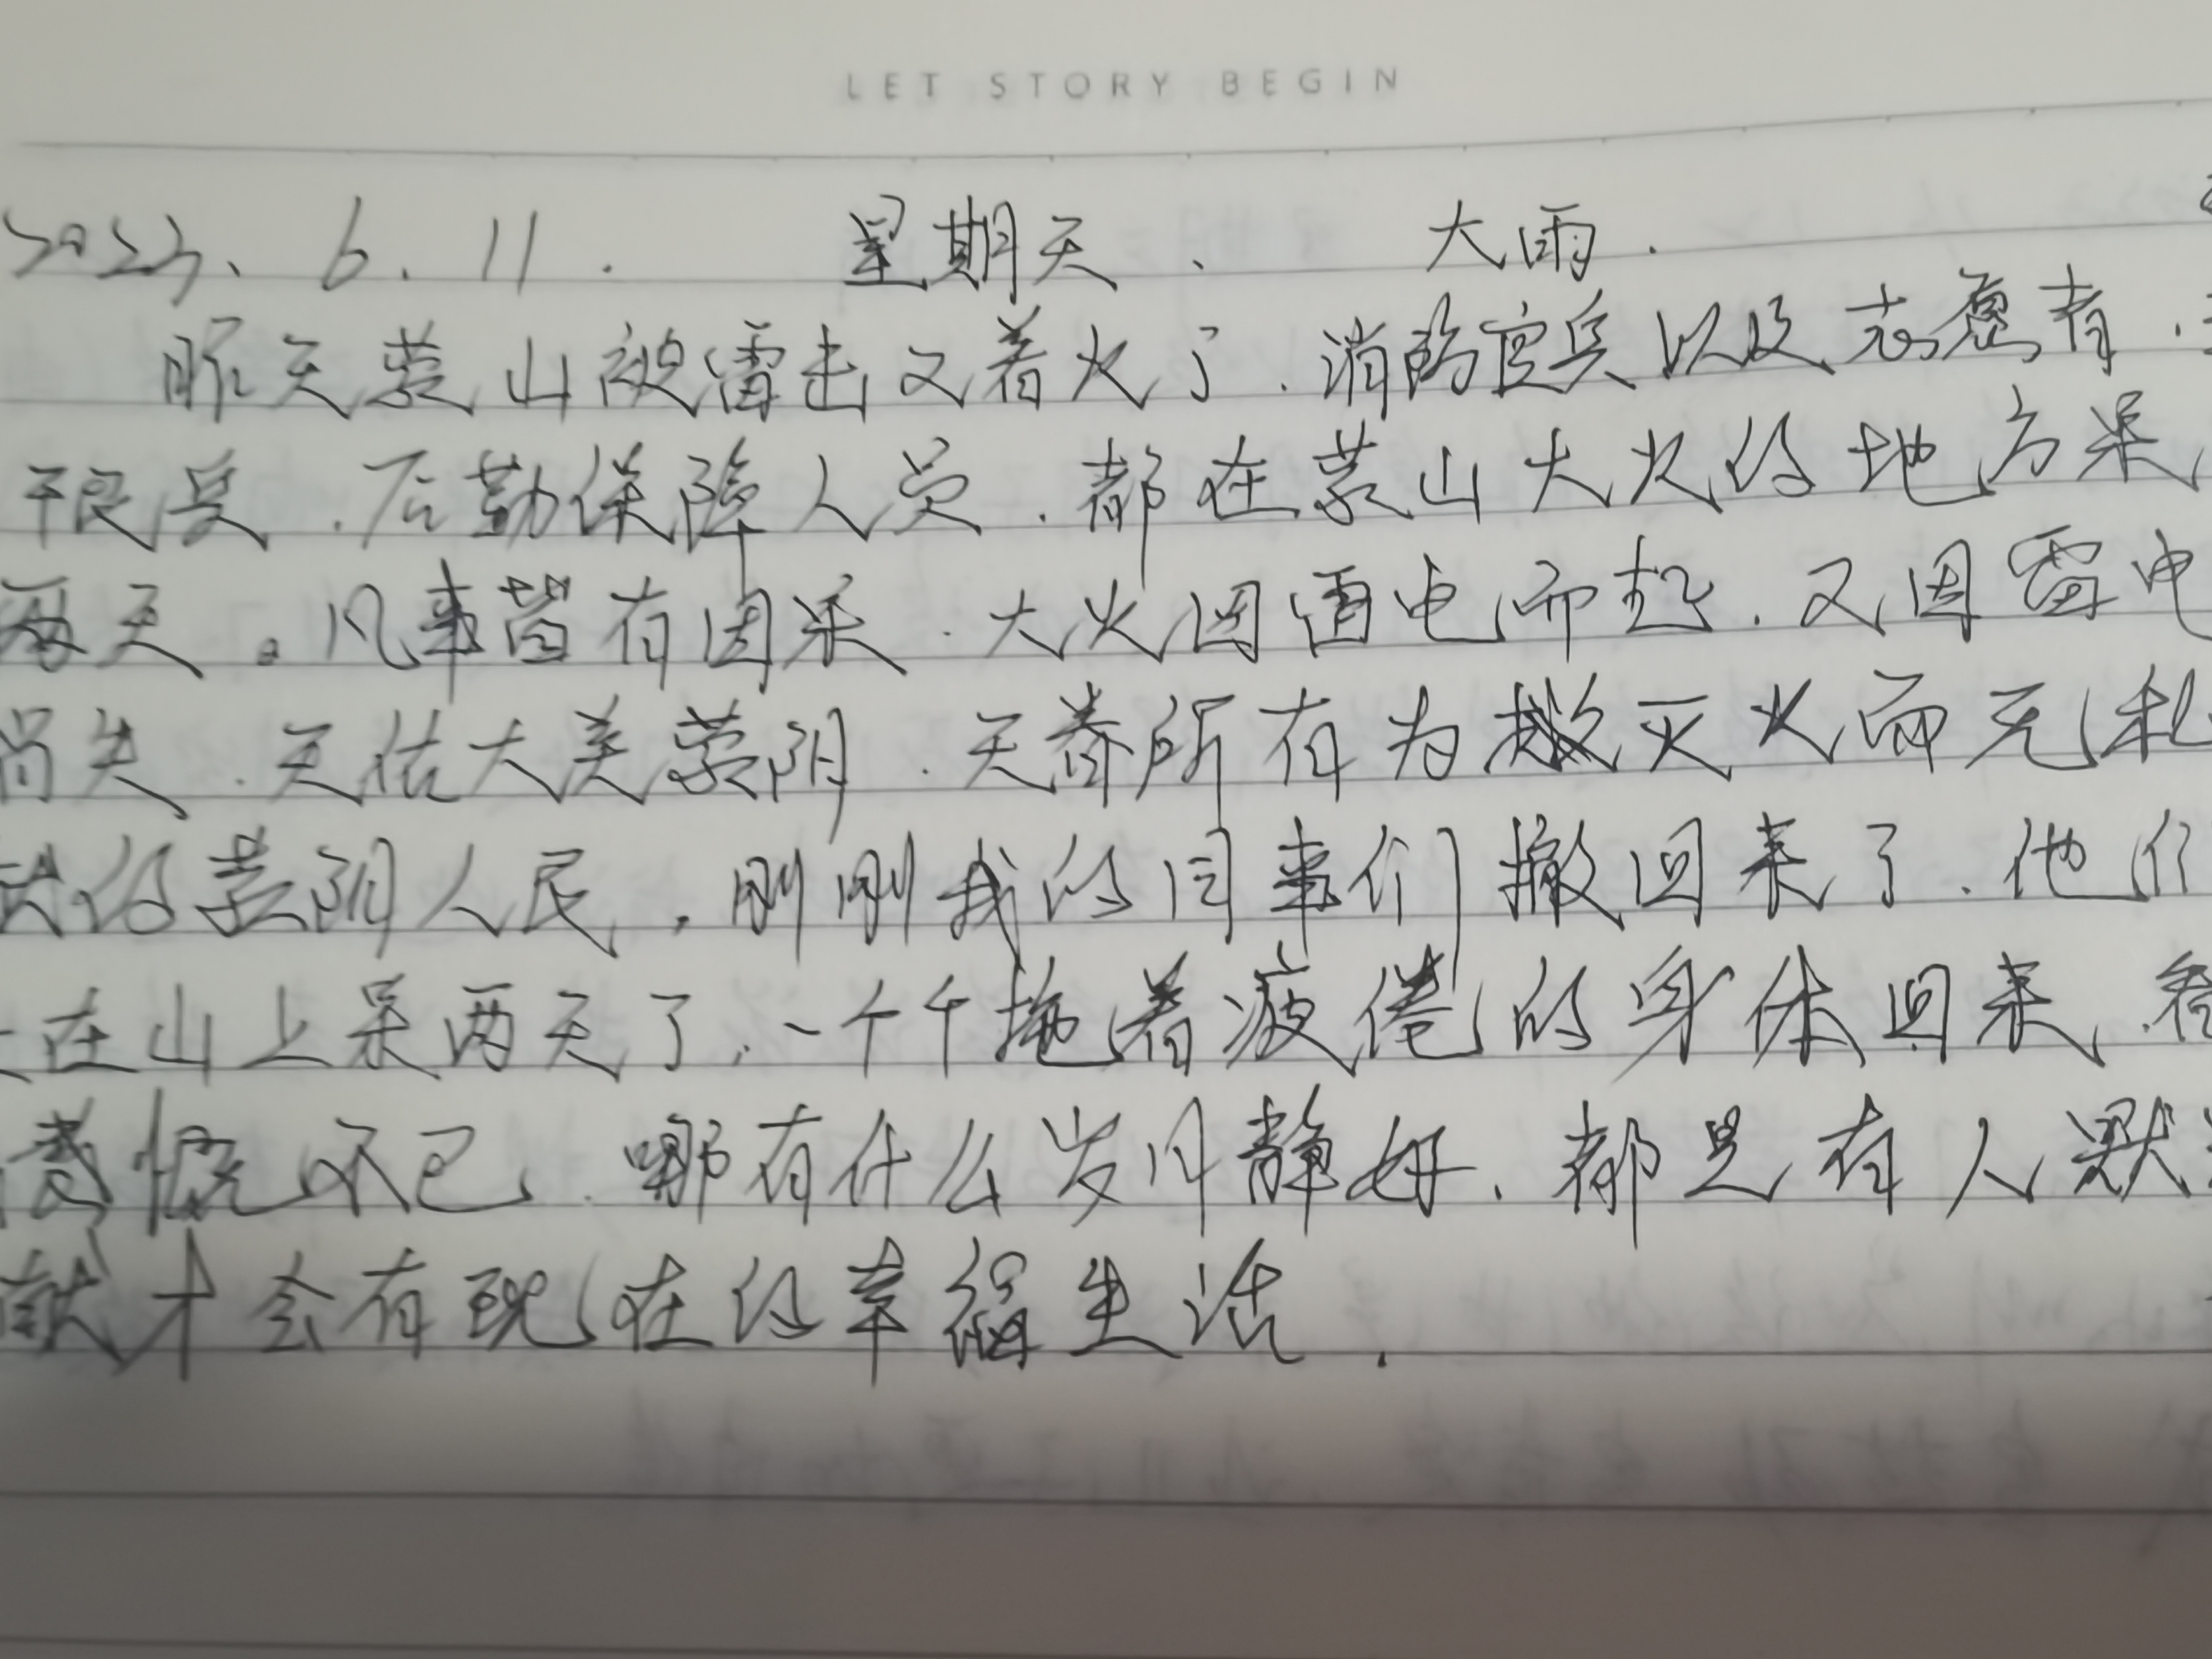 LET STORY BEGIN
2023. 6. 11. 星期天. 大雨.
昨天蒙山被雷击又着火了.消防官兵以及志愿者.
干良受.后勤保障人员.都在蒙山大火的地方呆
两天。凡事皆有因果.大火因雷电而起.又因雷电
损失.天佑大美蒙阴.天眷所有为扑灭火而无私
献的蒙阴人民,刚刚我的同事们撤回来了.他们
在山上呆两天了.一个个拖着疲倦的身体回来.看
感慨不已.哪有什么岁月静好.都是有人默
献才会有现在的幸福生活.